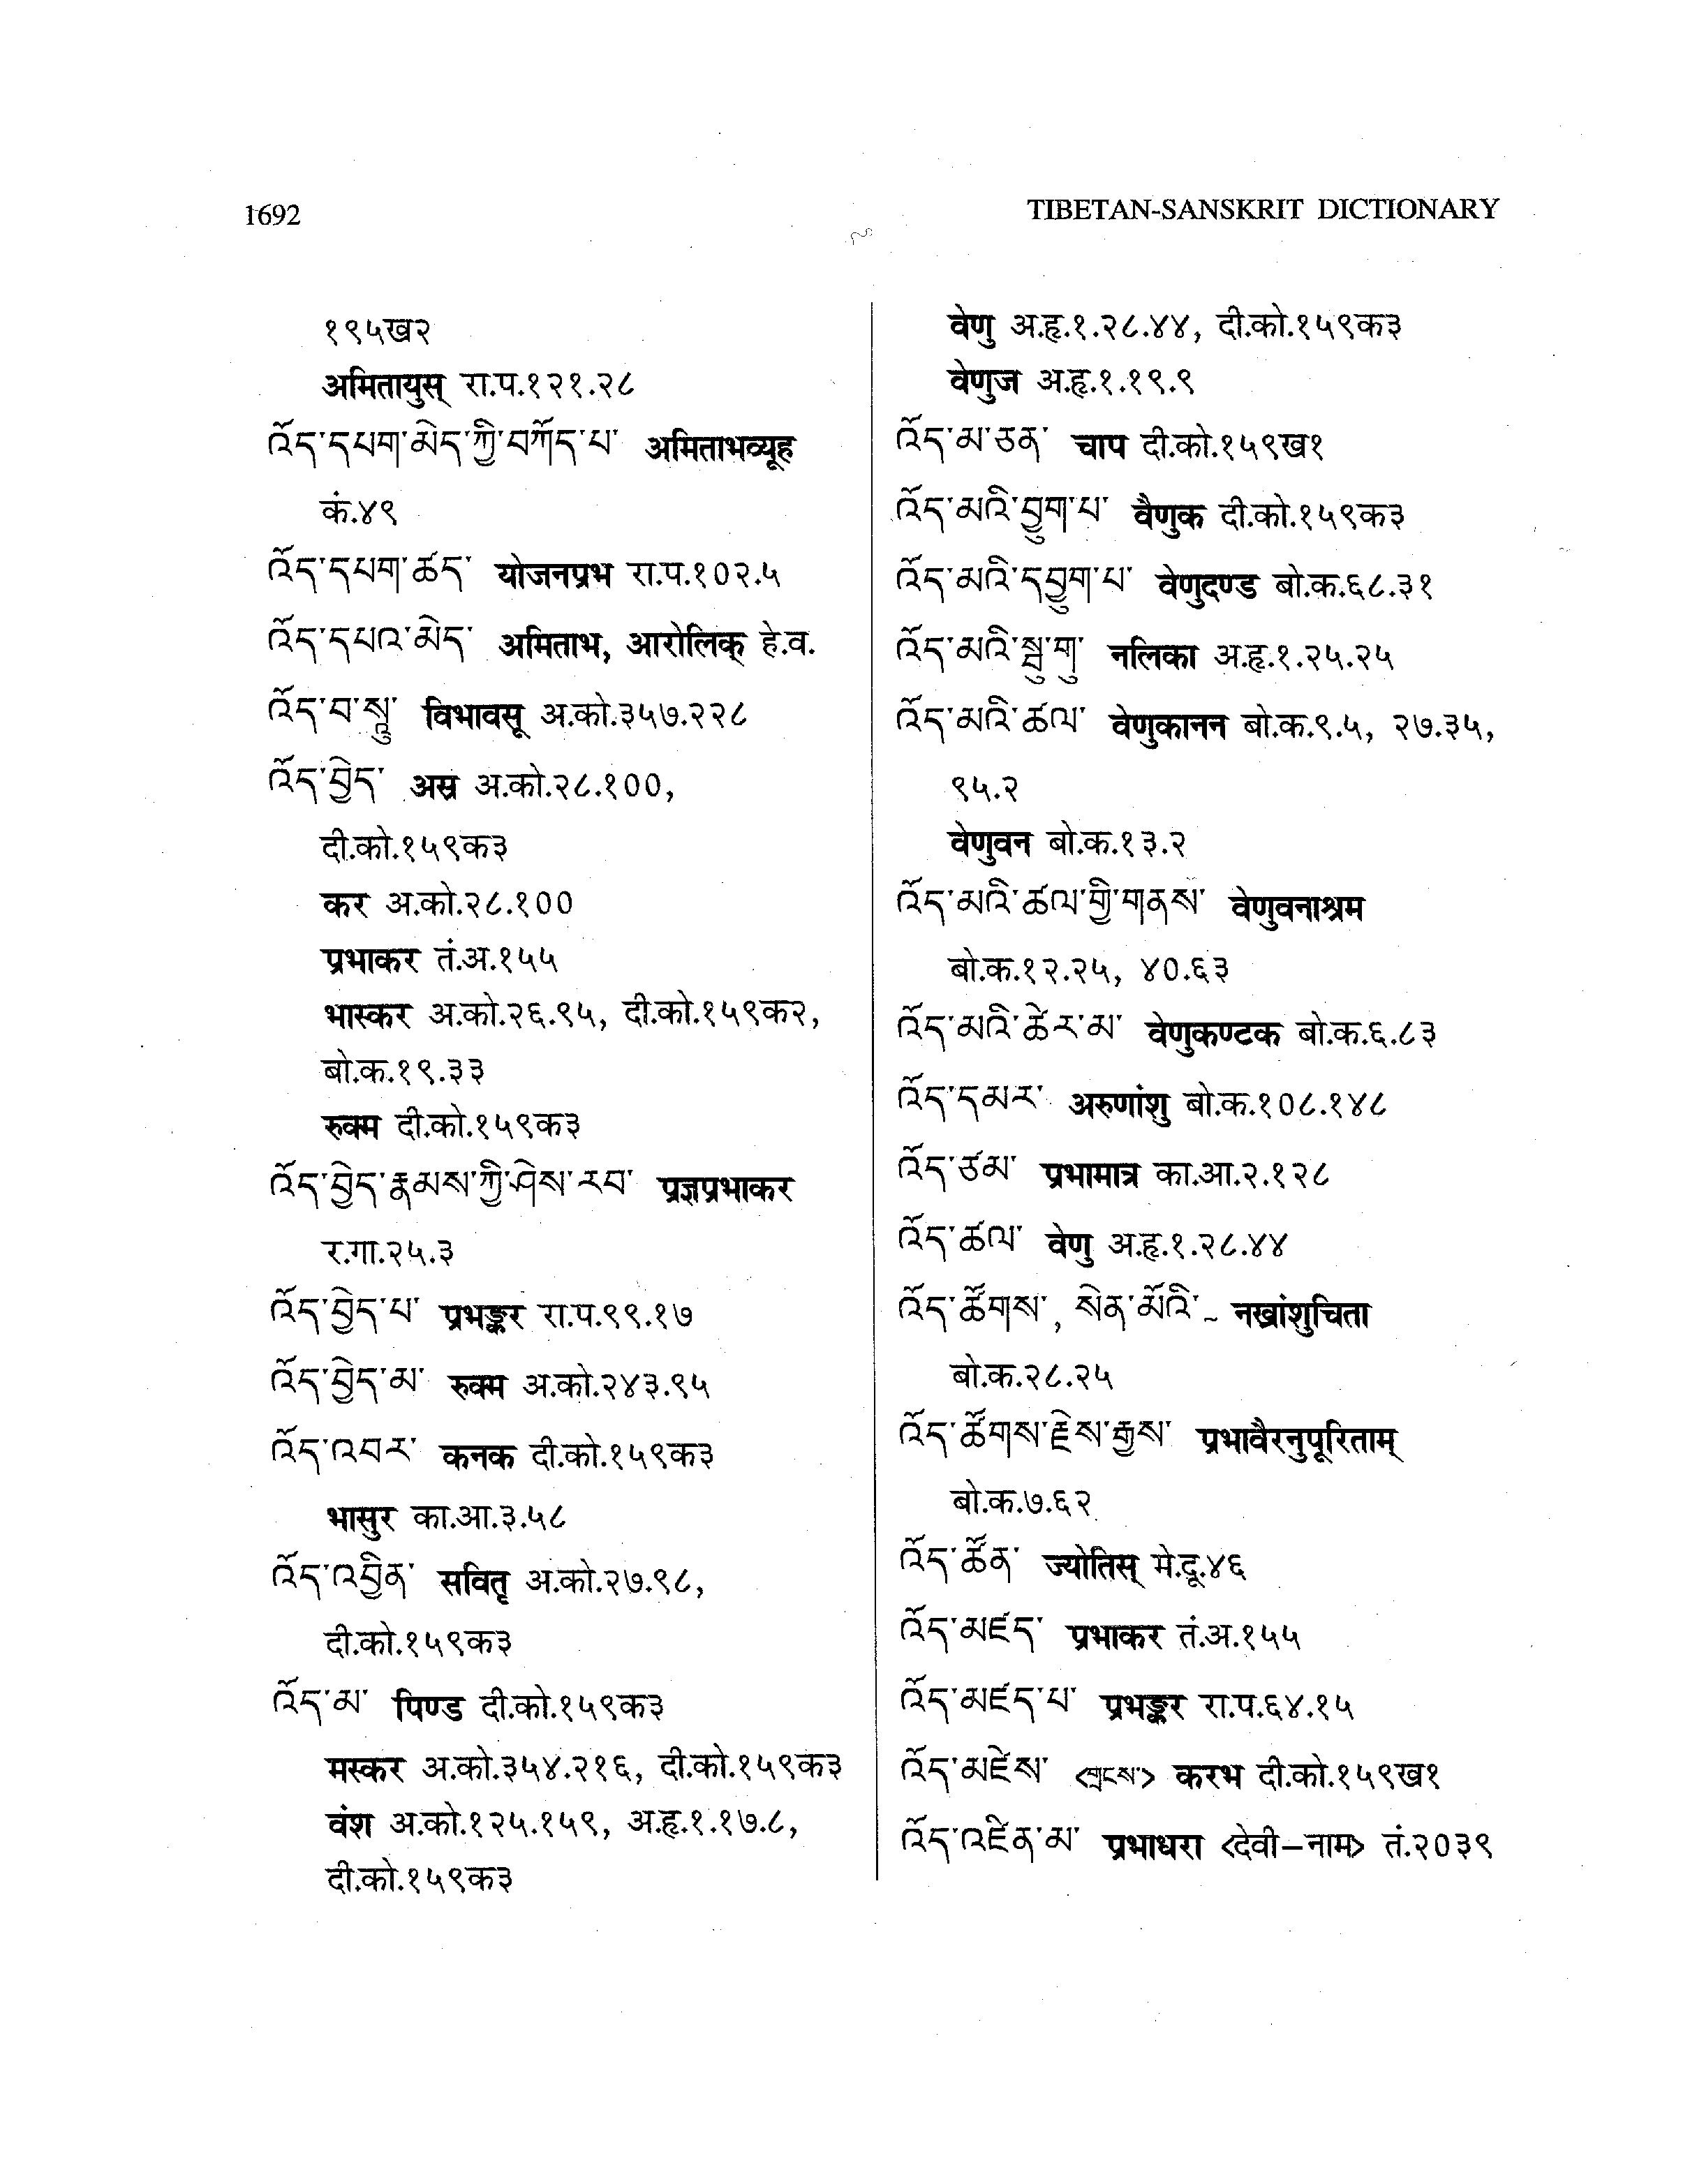 1692
TIBETAN-SANSKRIT DICTIONARY
१९५ख२
अमितायुस् रा.प.१२१.२८
འོད་དཔག་མེད་ཀྱི་བཀོད་པ་ अमिताभव्यूह
कं.४९
འོད་དཔག་ཚད་ योजनप्रभ रा.प.१०२.५
འོད་དཔའ་མེད་ अमिताभ, आरोलिक् हे.व.
འོད་བ་སཱུ་ विभावसू अ.को.३५७.२२८
འོད་བྱེད་ अस्र अ.को.२८.१००,
दी.को.१५९क३
कर अ.को.२८.१००
प्रभाकर तं.अ.१५५
भास्कर अ.को.२६.९५, दी.को.१५९क२,
बो.क.१९.३३
रुक्म दी.को.१५९क३
འོད་བྱེད་རྣམས་ཀྱི་ཤེས་རབ་ प्रज्ञप्रभाकर
र.गा.२५.३
འོད་བྱེད་པ་ प्रभङ्कर रा.प.९९.१७
འོད་བྱེད་མ་ रुक्म अ.को.२४३.९५
འོད་འབར་ कनक दी.को.१५९क३
भासुर का.आ.३.५८
འོད་འབྱིན་ सवितृ अ.को.२७.९८,
दी.को.१५९क३
འོད་མ་ पिण्ड दी.को.१५९क३
मस्कर अ.को.३५४.२१६, दी.को.१५९क३
वंश अ.को.१२५.१५९, अ.हृ.१.१७.८,
दी.को.१५९क३
वेणु अ.हृ.१.२८.४४, दी.को.१५९क३
वेणुज अ.हृ.१.१९.९
འོད་མ་ཅན་ चाप दी.को.१५९ख१
འོད་མའི་བྱུག་པ་ वैणुक दी.को.१५९क३
འོད་མའི་དབྱུག་པ་ वेणुदण्ड बो.क.६८.३१
འོད་མའི་སྦུ་གུ་ नलिका अ.हृ.१.२५.२५
འོད་མའི་ཚལ་ वेणुकानन बो.क.९.५, २७.३५,
९५.२
वेणुवन बो.क.१३.२
འོད་མའི་ཚལ་གྱི་གནས་ वेणुवनाश्रम
बो.क.१२.२५, ४०.६३
འོད་མའི་ཚེར་མ་ वेणुकण्टक बो.क.६.८३
འོད་དམར་ अरुणांशु बो.क.१०८.१४८
འོད་ཙམ་ प्रभामात्र का.आ.२.१२८
འོད་ཚལ་ वेणु अ.हृ.१.२८.४४
འོད་ཚོགས་, སེན་མོའི་~ नखांशुचिता
बो.क.२८.२५
འོད་ཚོགས་རྗེས་རྒྱས་ प्रभावैरनुपूरिताम्
बो.क.७.६२
འོད་ཚོན་ ज्योतिस् मे.दू.४६
འོད་མཛད་ प्रभाकर तं.अ.१५५
འོད་མཛད་པ་ प्रभङ्कर रा.प.६४.१५
འོད་མཛེས་ <གྲངས་> करभ दी.को.१५९ख१
འོད་འཛིན་མ་ प्रभाधरा <देवी–नाम> तं.२०३९